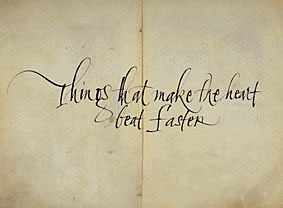 Things that make the heart
beat faster